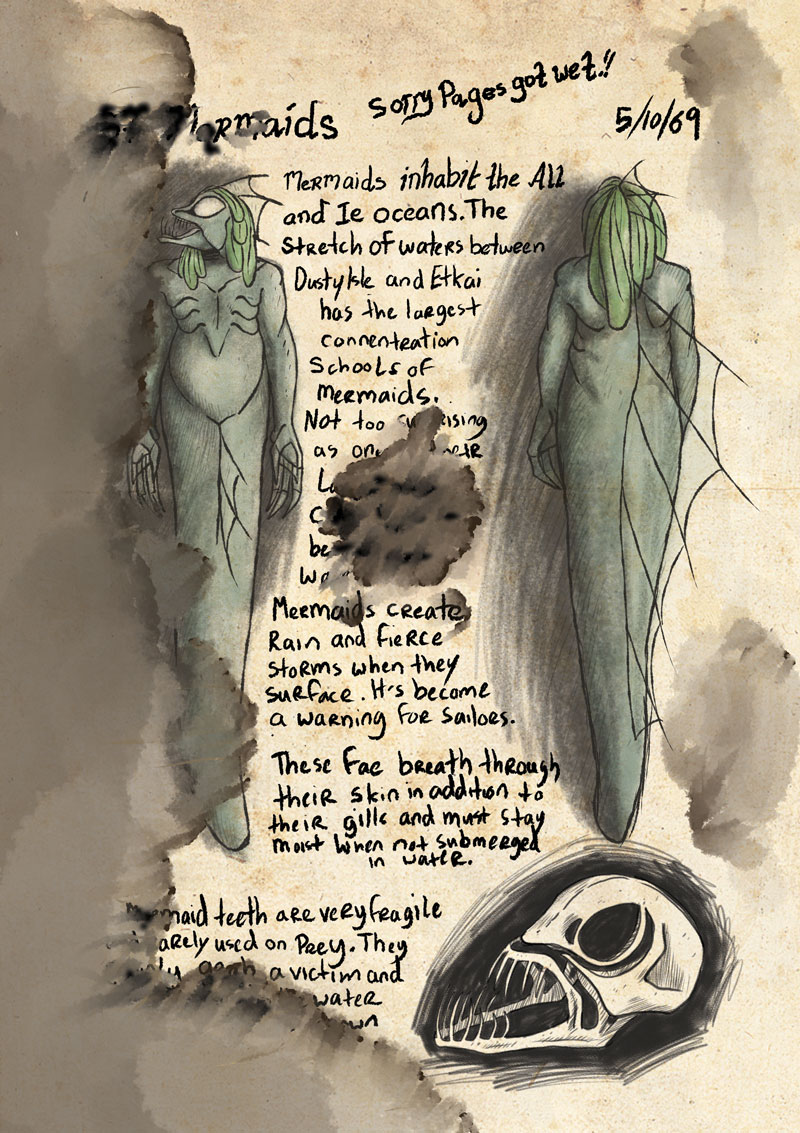 Mermaids
Sorry Pages got wet!!
5/10/69
Mermaids inhabit the All
and Ie oceans. The
stretch of waters between
Dusty Isle and Etkai
has the largest
connentration
Schools of
mermaids.
Not too
as
Mermaids create
Rain and fierce
storms when they
surface. It's become
a warning for sailors.
These Fae breath through
their skin in addition to
their gills and must stay
moist when not submerged
in water.
teeth are very fragile
used on Prey. They
a victim and
water